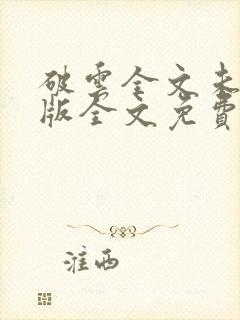 破雲全文未
版全文免費
淮西